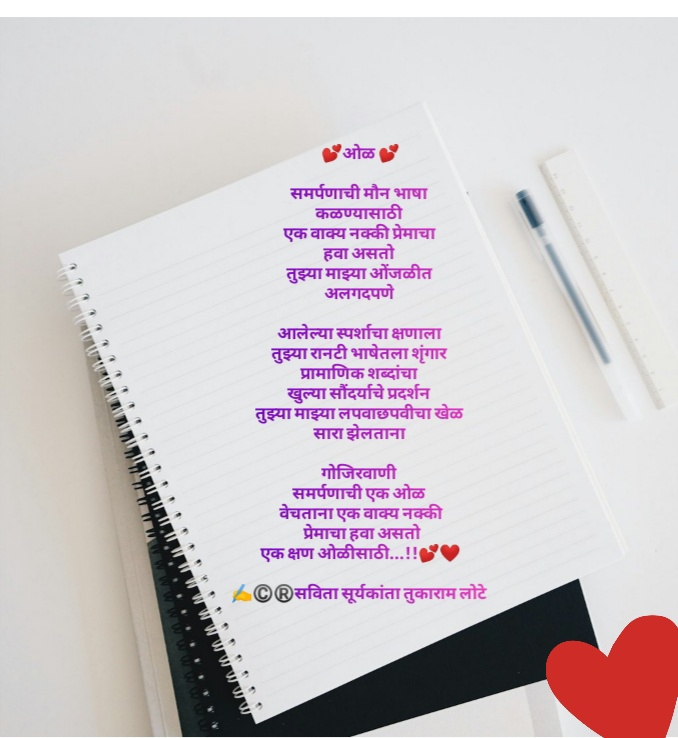 💕ओळ 💕
समर्पणाची मौन भाषा
कळण्यासाठी
एक वाक्य नक्की प्रेमाचा
हवा असतो
तुझ्या माझ्या ओंजळीत
अलगदपणे
आलेल्या स्पर्शाचा क्षणाला
तुझ्या रानटी भाषेतला शृंगार
प्रामाणिक शब्दांचा
खुल्या सौंदर्याचे प्रदर्शन
तुझ्या माझ्या लपवाछपवीचा खेळ
सारा झेलताना
गोजिरवाणी
समर्पणाची एक ओळ
वेचताना एक वाक्य नक्की
प्रेमाचा हवा असतो
एक क्षण ओळीसाठी...!!💕❤️
✍️©️®️सविता सूर्यकांता तुकाराम लोटे